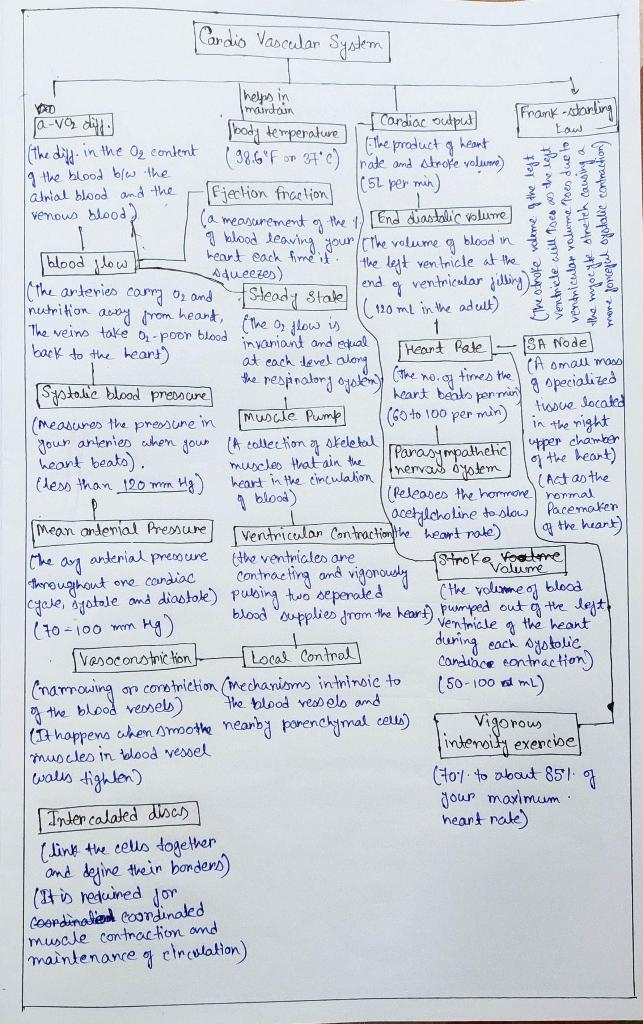 Cardio Vascular System
a-VO2 diff.
(The diff. in the O2 content
of the blood b/w the
atrial blood and the
venous blood)
helps in
maintain
body temperature
(98.6°F or 37°c)
Cardiac output
(The product of heart
rate and stroke volume)
(5L per min)
Frank-starling
Law
(The stroke volume of the left
ventricle will as the left
ventricular volume due to
the myocyte stretch causing a
more forceful systolic contraction)
Ejection fraction
(a measurement of the %
of blood leaving your
heart each time it
squeezes)
End diastolic volume
(The volume of blood in
the left ventricle at the
end of ventricular filling)
(120 mL in the adult)
blood flow
(The arteries carry O2 and
nutrition away from heart,
The veins take O2-poor blood
back to the heart)
Steady State
(The O2 flow is
invariant and equal
at each level along
the respiratory system)
Heart Rate
(The no. of times the
heart beats per min)
(60 to 100 per min)
SA Node
(A small mass
of specialized
tissue located
in the right
upper chamber
of the heart)
(Act as the
normal
Pacemaker
of the heart)
Systolic blood pressure
(Measures the pressure in
your arteries when your
heart beats).
(less than 120 mm Hg)
Muscle Pump
(A collection of skeletal
muscles that ain the
heart in the circulation
of blood)
Parasympathetic
nervous system
(Releases the hormone
acetylcholine to slow
the heart rate)
Mean arterial Pressure
(The avg arterial pressure
throughout one cardiac
cycle, systole and diastole)
(70-100 mm Hg)
Ventricular Contraction
(the ventricles are
contracting and vigorously
pulsing two seperated
blood supplies from the heart)
Stroke
Volume
(The volume of blood
pumped out of the left
ventricle of the heart
during each systolic
candiace contraction)
(50-100 mL)
Vasoconstriction
(narrowing or constriction
of the blood vessels)
(It happens when smoothe
muscles in blood vessel
walls tighten)
Local Control
(Mechanisms intrinsic to
the blood vessels and
nearby parenchymal cells)
Vigorous
intensity exercise
(70% to about 85% of
your maximum
heart rate)
Intercalated discs
(link the cells together
and define their borders)
(It is required for
coordinated
muscle contraction and
maintenance of circulation)